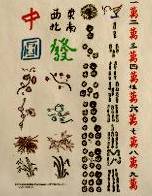 中
東南
西北
發
一萬
二萬
三萬
四萬
伍萬
六萬
七萬
八萬
九萬